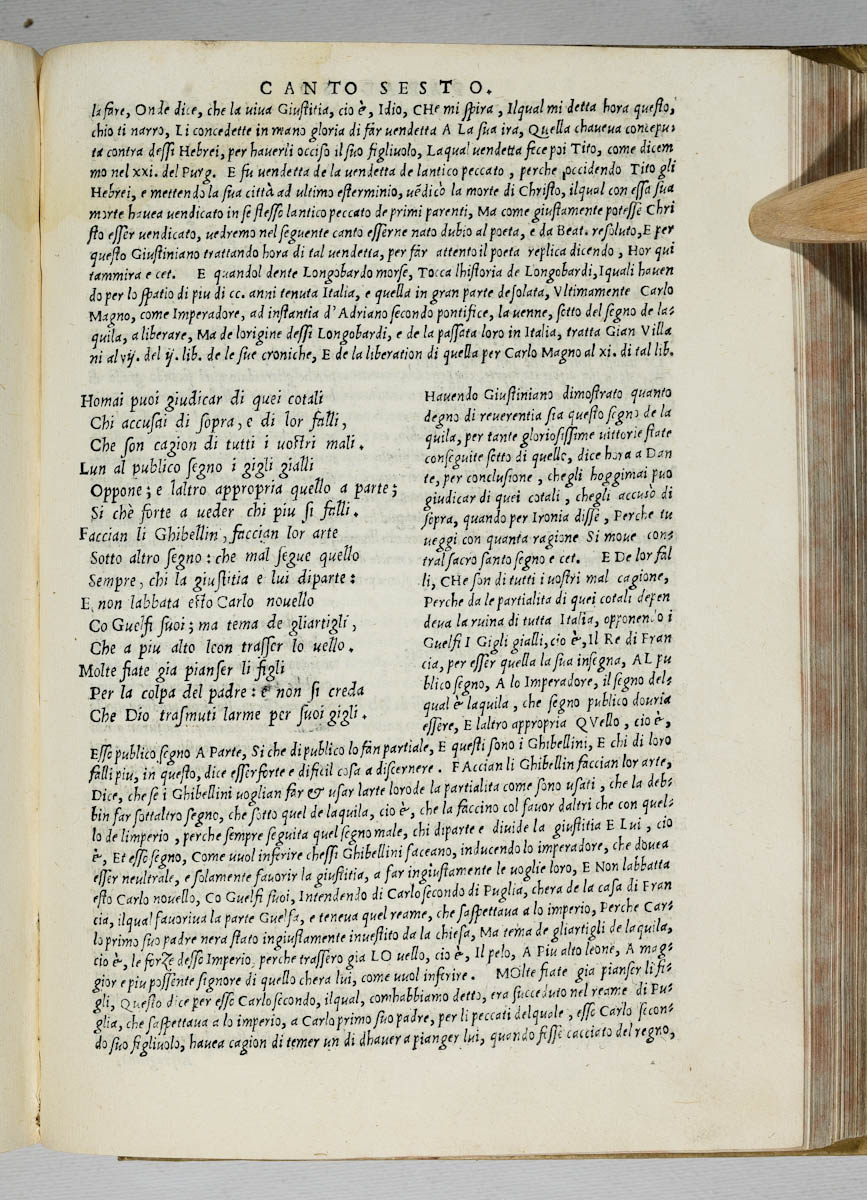 CANTO SESTO.
la fare, Onde dice, che la uiua Giustitia, cio è, Idio, CHe mi spira, Ilqual mi detta hora questo,
chio ti narro, Li concedette in mano gloria di far uendetta A La sua ira, Quella chaueua concepu-
ta contra dessi Hebrei, per hauerli occiso il suo figliuolo, Laqual uendetta fece poi Tito, come dicem
mo nel xxi. del Purg. E fu uendetta de la uendetta de lantico peccato, perche occidendo Tito gli
Hebrei, e mettendo la sua città ad ultimo esterminio, uẽdicò la morte di Christo, ilqual con essa sua
morte hauea uendicato in se stesso lantico peccato de primi parenti, Ma come giustamente potesse Chri
sto esser uendicato, uedremo nel seguente canto esserne nato dubio al poeta, e da Beat. resoluto, E per
questo Giustiniano trattando hora di tal uendetta, per far attento il poeta replica dicendo, Hor qui
tammira e cet. E quandol dente Longobardo morse, Tocca lhistoria de Longobardi, Iquali hauen
do per lo spatio di piu di cc. anni tenuta Italia, e quella in gran parte desolata, Vltimamente Carlo
Magno, come Imperadore, ad instantia d'Adriano secondo pontifice, la uenne, sotto del segno de la-
quila, a liberare, Ma de lorigine dessi Longobardi, e de la passata loro in Italia, tratta Gian Villa
ni al vij. del ij. lib. de le sue croniche, E de la liberation di quella per Carlo Magno al xi. di tal lib.
Homai puoi giudicar di quei cotali
Chi accusai di sopra, e di lor falli,
Che son cagion di tutti i uostri mali.
Lun al publico segno i gigli gialli
Oppone; e laltro appropria quello a parte;
Si chè forte a ueder chi piu si falli.
Faccian li Ghibellin, faccian lor arte
Sotto altro segno: che mal segue quello
Sempre, chi la giustitia e lui diparte:
E non labbata esto Carlo nouello
Co Guelfi suoi; ma tema de gliartigli,
Che a piu alto leon trasser lo uello.
Molte fiate gia pianser li figli
Per la colpa del padre: e non si creda
Che Dio trasmuti larme per suoi gigli.
Hauendo Giustiniano dimostrato quanto
degno di reuerentia sia questo segno de la
quila, per tante gloriosissime uittorie state
conseguite sotto di quello, dice hora a Dan
te, per conclusione, chegli hoggimai puo
giudicar di quei cotali, chegli accusò di
sopra, quando per Ironia disse, Perche tu
ueggi con quanta ragione Si moue con-
tral sacro santo segno e cet. E De lor fal
li, CHe son di tutti i uostri mal cagione,
Perche da le partialita di quei cotali depen
deua la ruina di tutta Italia, opponendo i
Guelfi I Gigli gialli, cio è, Il Re di Fran
cia, per esser quella la sua insegna, AL Pu
blico segno, A lo Imperadore, il segno del-
qual è laquila, che segno publico douria
essere, E laltro appropria QVello, cio è,
Esso publico segno A Parte, Si che di publico lo fan partiale, E questi sono i Ghibellini, E chi di loro
falli piu, in questo, dice esser forte e dificil cosa a discernere. FAccian li Ghibellin faccian lor arte,
Dice, che se i Ghibellini uoglian far & usar larte loro de la partialita come sono usati, che la deb-
bin far sottaltro segno, che sotto quel de laquila, cio è, che la faccino col fauor daltri che con quel-
lo de limperio, perche sempre seguita quel segno male, chi diparte e diuide la giustitia E Lui, cio
è, Et esso segno, Come uuol inferire chessi Ghibellini faceano, inducendo lo imperadore, che douea
esser neutrale, e solamente fauorir la giustitia, a far ingiustamente le uoglie loro, E Non labbatta
esto Carlo nouello, Co Guelfi suoi, Intendendo di Carlo secondo di Puglia, chera de la casa di Fran
cia, ilqual fauoriua la parte Guelfa, e teneua quel reame, che saspettaua a lo imperio, Perche Car-
lo primo suo padre nera stato ingiustamente inuestito da la chiesa, Ma tema de gliartigli de laquila,
cio è, le forze desso Imperio, perche trassero gia LO uello, cio è, Il pelo, A Piu alto leone, A mag-
gior e piu possente signore di quello chera lui, come uuol inferire. MOlte fiate gia pianser li fi-
gli, Questo dice per esso Carlo secondo, ilqual, comhabbiamo detto, era succeduto nel reame di Pu-
glia, che saspettaua a lo imperio, a Carlo primo suo padre, per li peccati delquale, esso Carlo secon-
do suo figliuolo, hauea cagion di temer un di dhauer a pianger lui, quando fosse cacciato del regno,